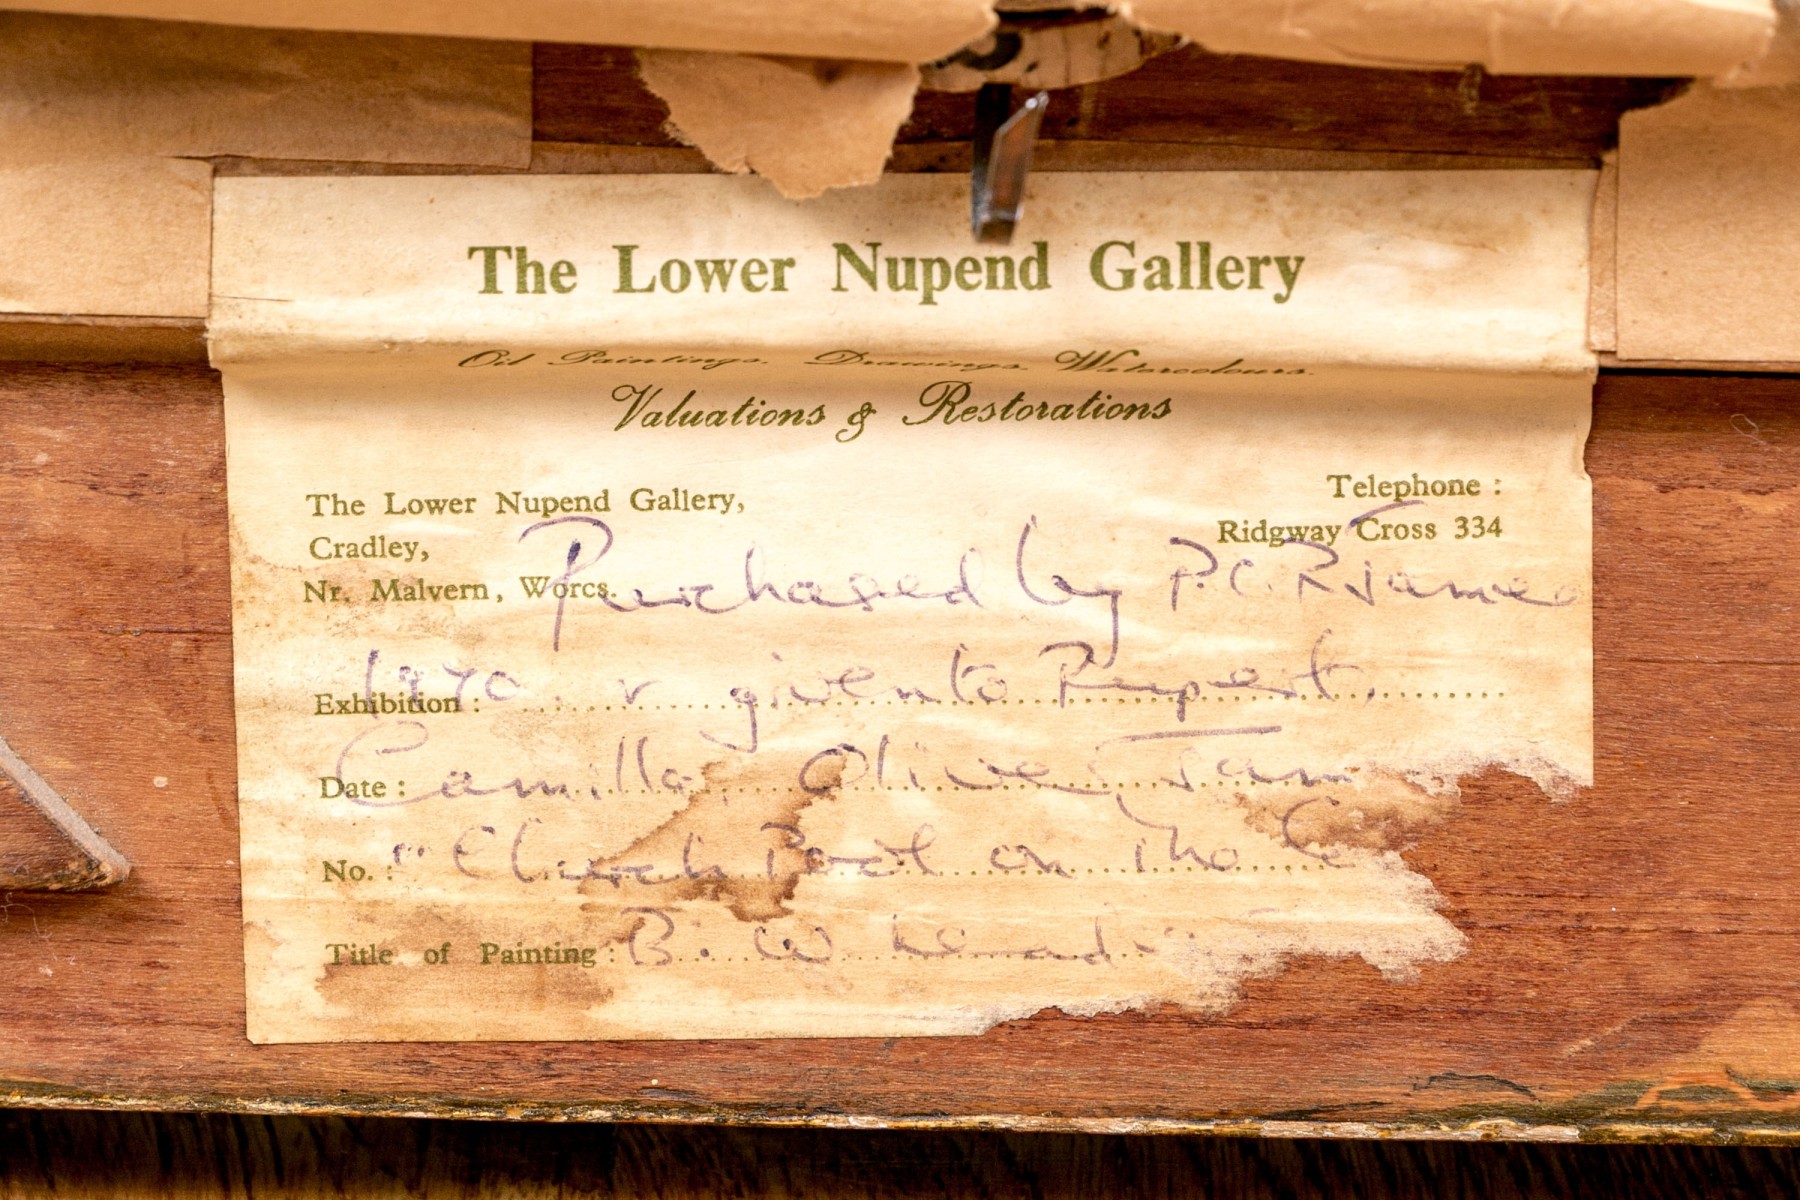 The Lower Nupend Gallery
Oil Paintings. Drawings. Watercolours.
Valuations & Restorations
Telephone :
Ridgway Cross 334
The Lower Nupend Gallery,
Cradley,
Nr. Malvern, Worcs.
Purchased by P.C.R. James
1970 given to Rupert.
Exhibition :
Camilla, Oliver, Jam
Date :
"Church Pool on The
No. :
B. W.
Title of Painting :